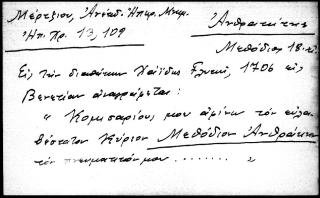 Μέρτζιου, Ἀνέκδ. Ἠπειρ. Μνημ.
Ἠπ. Χρ. 13, 109
Ἀνθρακίτης
Μεθόδιος 18. αἰ.
Εἰς τὴν διαθήκην Χαϊίδης Γλυκῆ, 1706 εἰς
Βενετίαν ἀναγράφεται:
" Κομισαρίους μου ἀφίνω τὸν εὐλα-
βέστατον Κύριον Μεθόδιον Ἀνθρακίτην
τὸν πνευματικόν μου ........ "